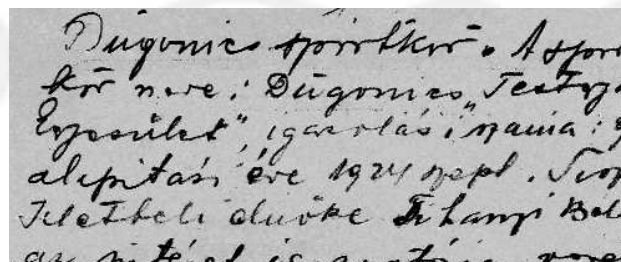 Dugonics sportkör. A spor
kör neve: Dugonics „Testgy
Egyesület", igazolási száma:
alapitási éve 1924 szept.
Tiletbeli elnöke Tihanyi Bél
az intézet igazgatója